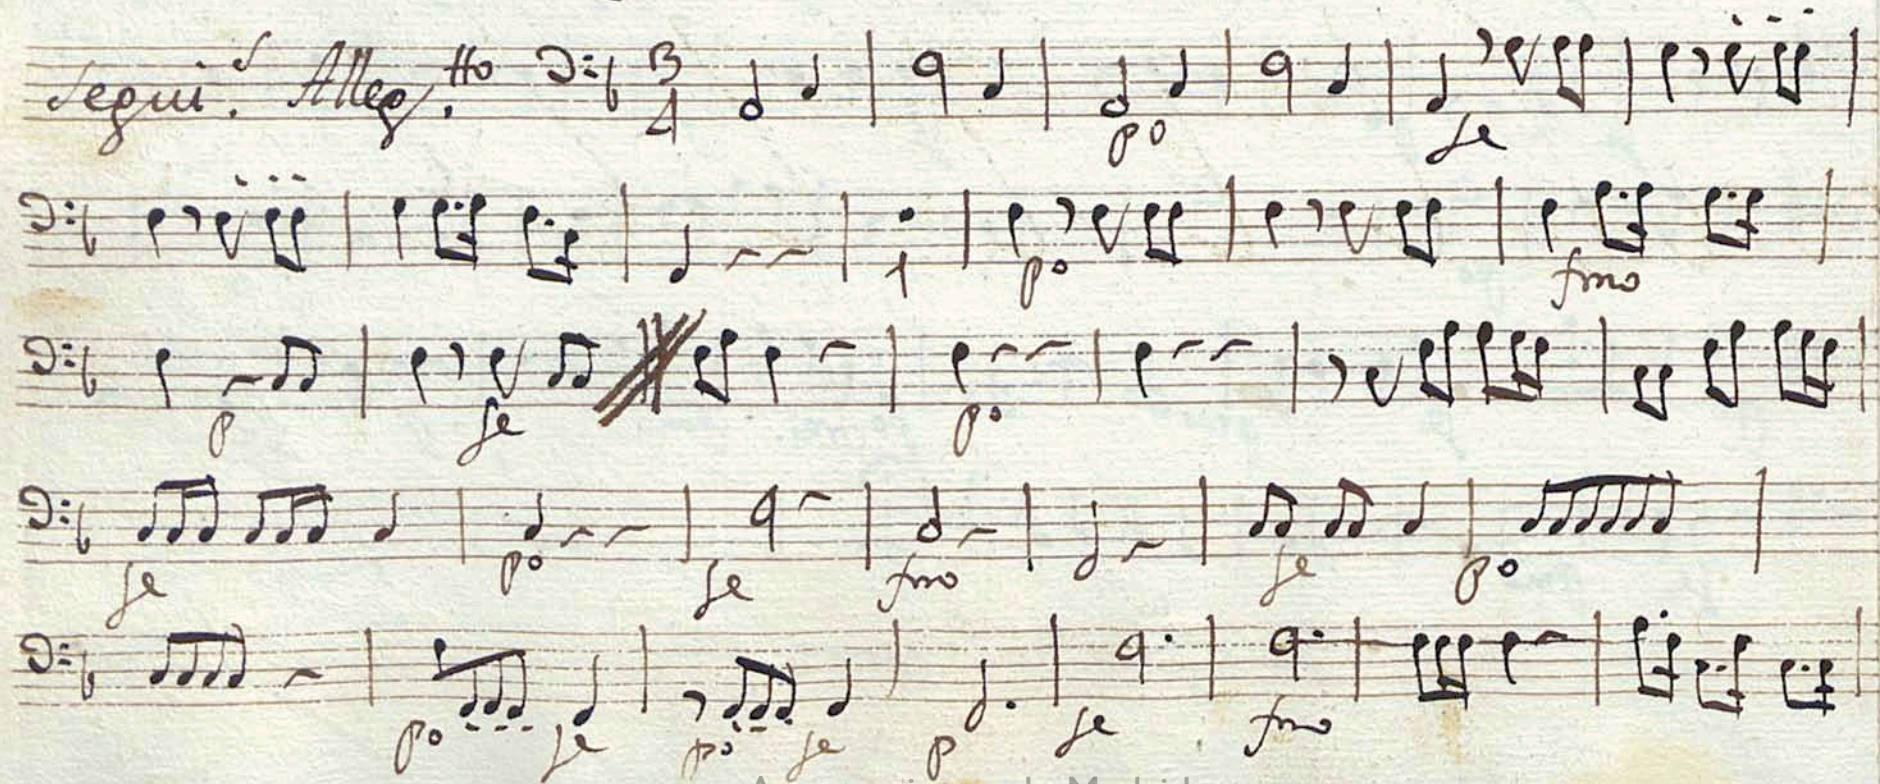 Segui.s Alleg.tto 3 4
po fe
1 po fmo
p fe po
fe po fe fmo fe po
po fe po fe p fe fmo